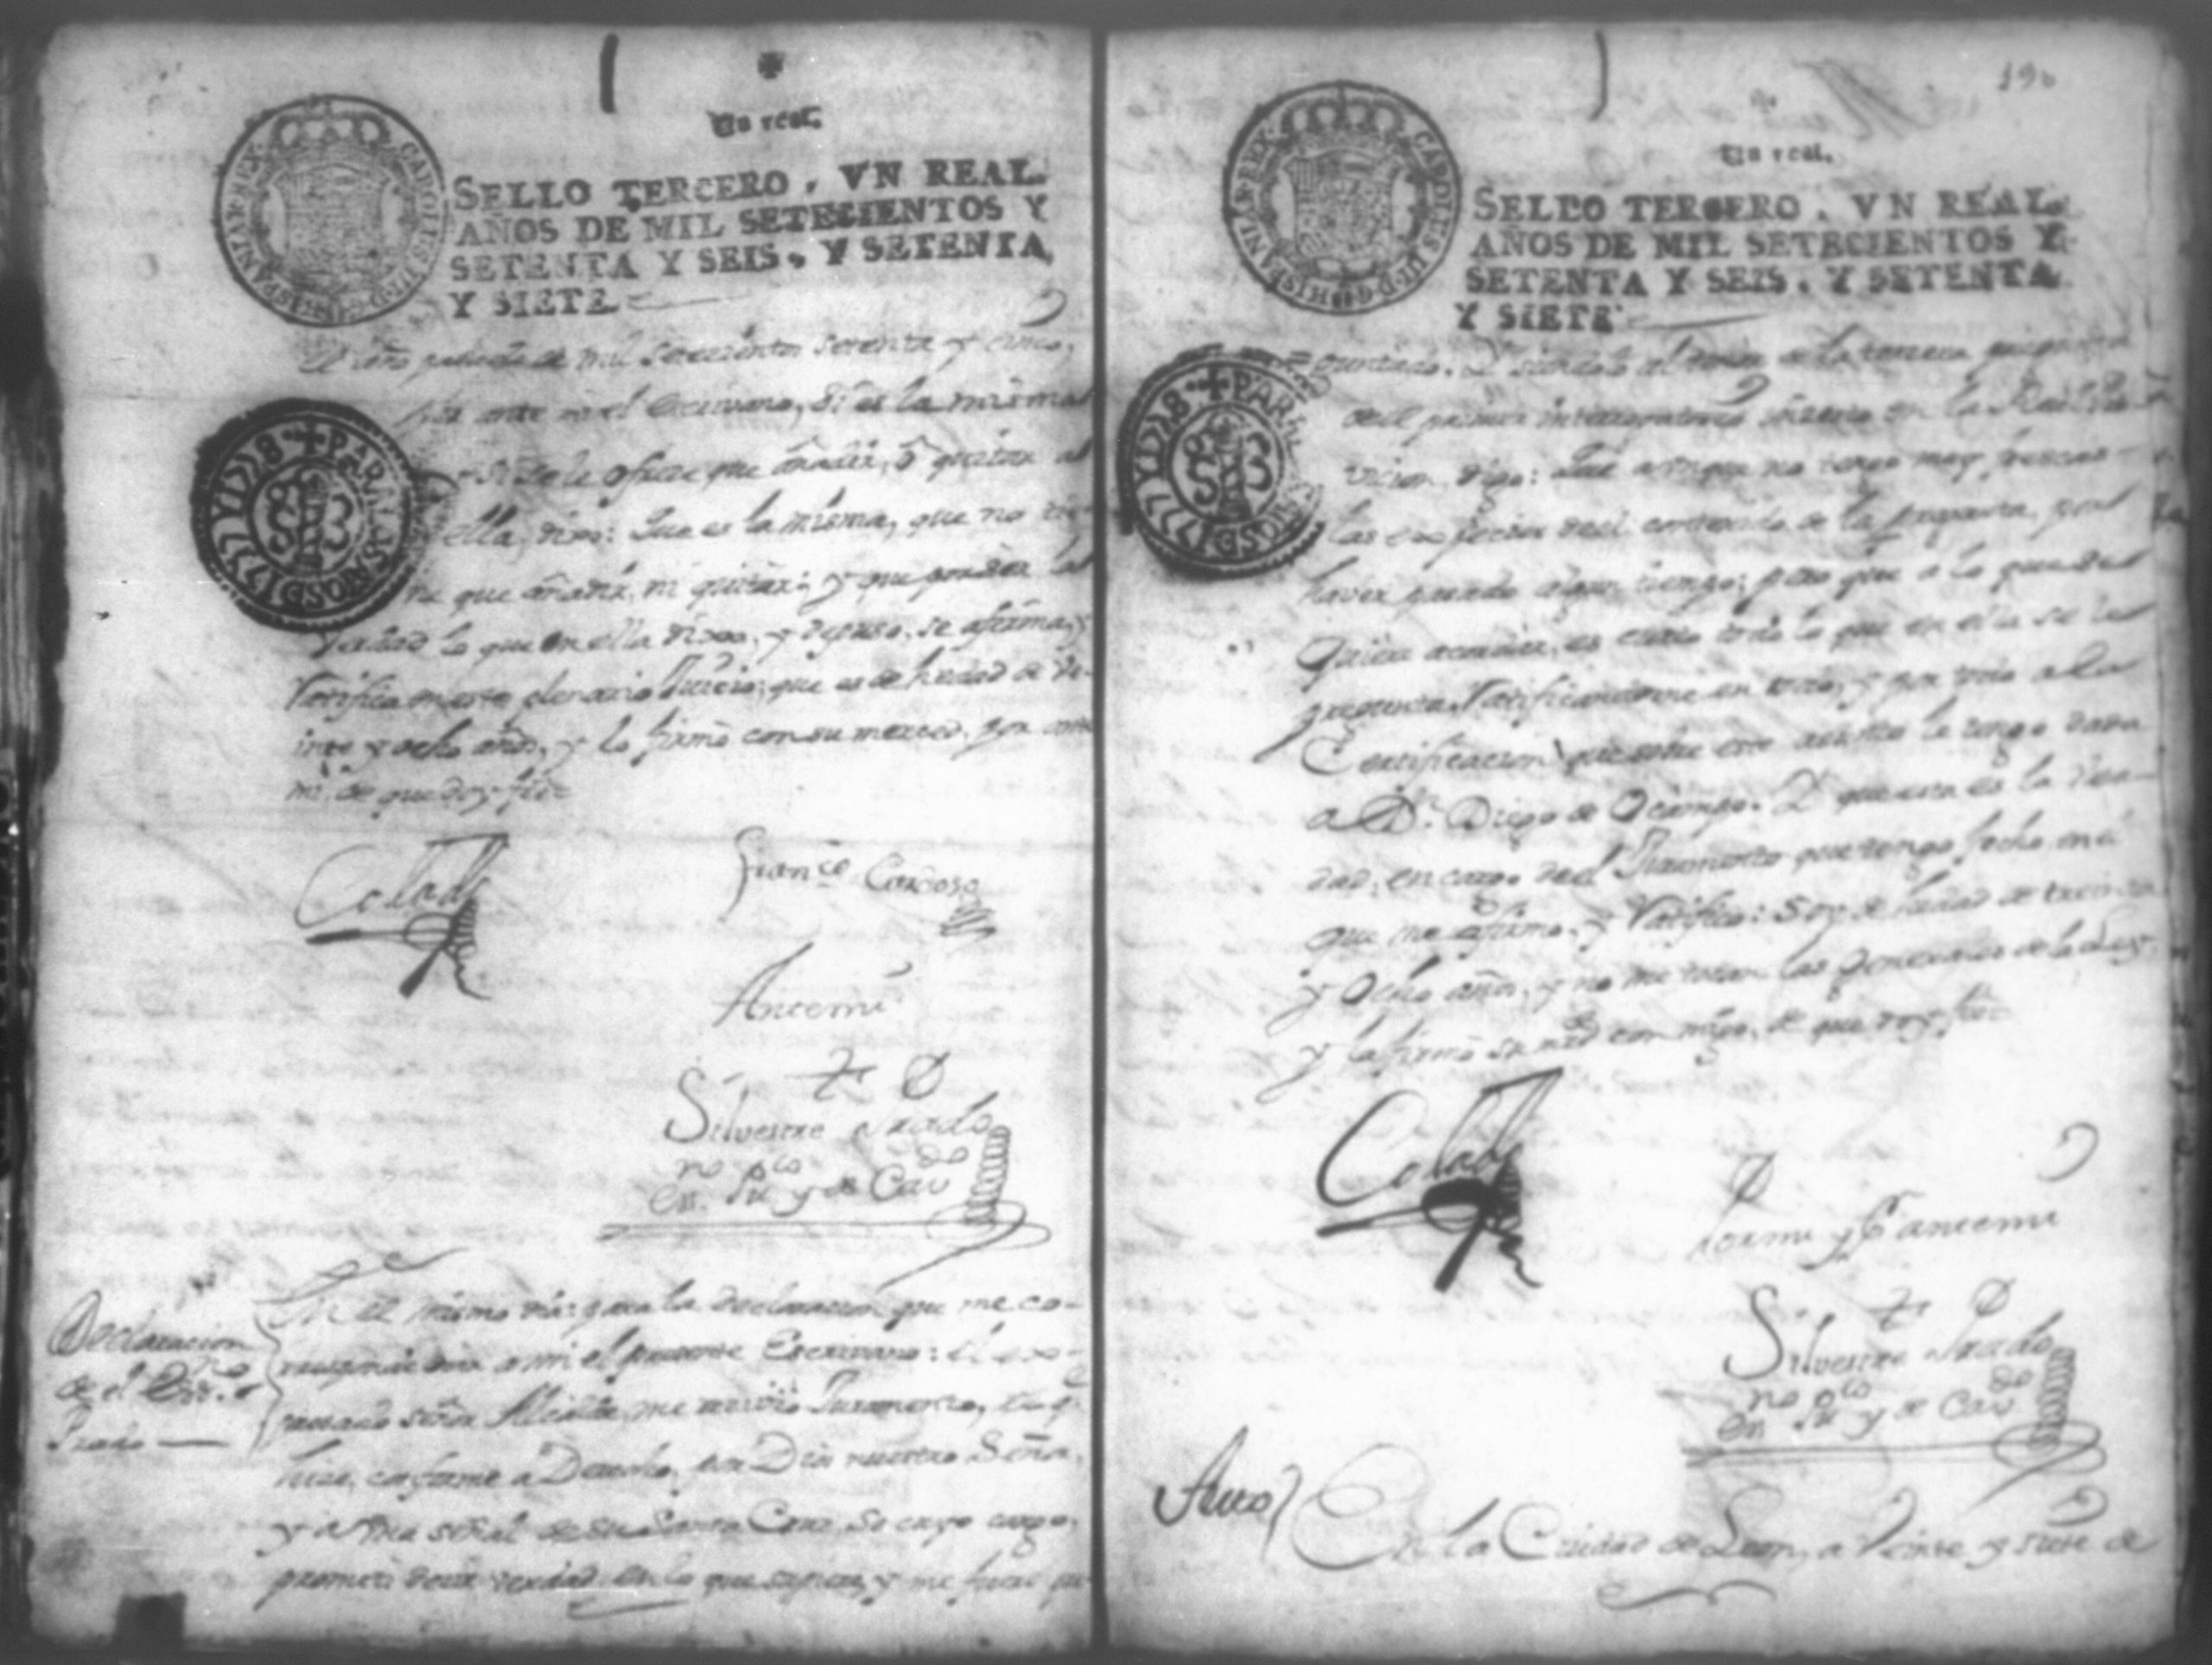 Un real.
SELLO TERCERO, VN REAL.
AÑOS DE MIL SETECIENTOS Y
SETENTA Y SEIS, Y SETENTA
Y SIETE
CAROLUS III D.G. HISPANIAR. REX
PARA LOS AÑOS D 1777 Y D 78
año de mil setecientos setenta y cinco,
por ante mi el Escrivano, si es la misma
si se le ofrece que añadir, ô quitar
ella, dixo: Que es la misma, que no
ne que añadir, ni quitar: y que por ser la
verdad lo que en ella dixo, y expuso, se afirma, y
Ratifica en este plenario Juicio; que es de hedad de ve-
inte y ocho años, y lo firmó con su merced, por ante
mi, de que doy fee
Colado
Franco Cardoso
Antemi
Silvestre Prado
no pco do
En. Pu y de Cav
Declaracion
de el Esno
Prado
En el mismo dia: para la declaracion que me co-
rresponde ami el presente Escrivano: el ex-
presado señor Alcalde me recivió Juramento, que
hize, conforme â Derecho, por Dios nuestro Señor,
y a una señal de su Santa Cruz, So cuyo cargo,
prometi decir verdad en lo que supiere, y me fuere
190
Un real.
SELLO TERCERO, VN REAL.
AÑOS DE MIL SETECIENTOS Y
SETENTA Y SEIS, Y SETENTA
Y SIETE
CAROLUS III D.G. HISPANIAR. REX
PARA LOS AÑOS D 1777 Y D 78
guntado. Y siendolo al tenor de la tercera pregunta
del primer interrogatorio
digo: Que aunque no tengo muy presentes
las del contenido de la pregunta, por
haver pasado algun tiempo; pero que â lo que me
quiero acordar, es cierto todo lo que en ella se
pregunta, Ratificandome en todo, y por todo a la
Certificacion que sobre este asunto le tengo dada
a Dn. Diego de Ocampo. Y que esta es la Ver-
dad, en cargo del Juramento que tengo fecho en
que me afirmo, y Ratifico: Soy de hedad de treinta
y ocho años, y no me tocan las Generales de la Ley,
y la firmó su md conmigo, de que doy fee
Colado
Por mi y Pantemi
Silvestre Prado
no pco do
En Pu y de Cav
Auto
En la Ciudad de Leon, a Veinte y siete de